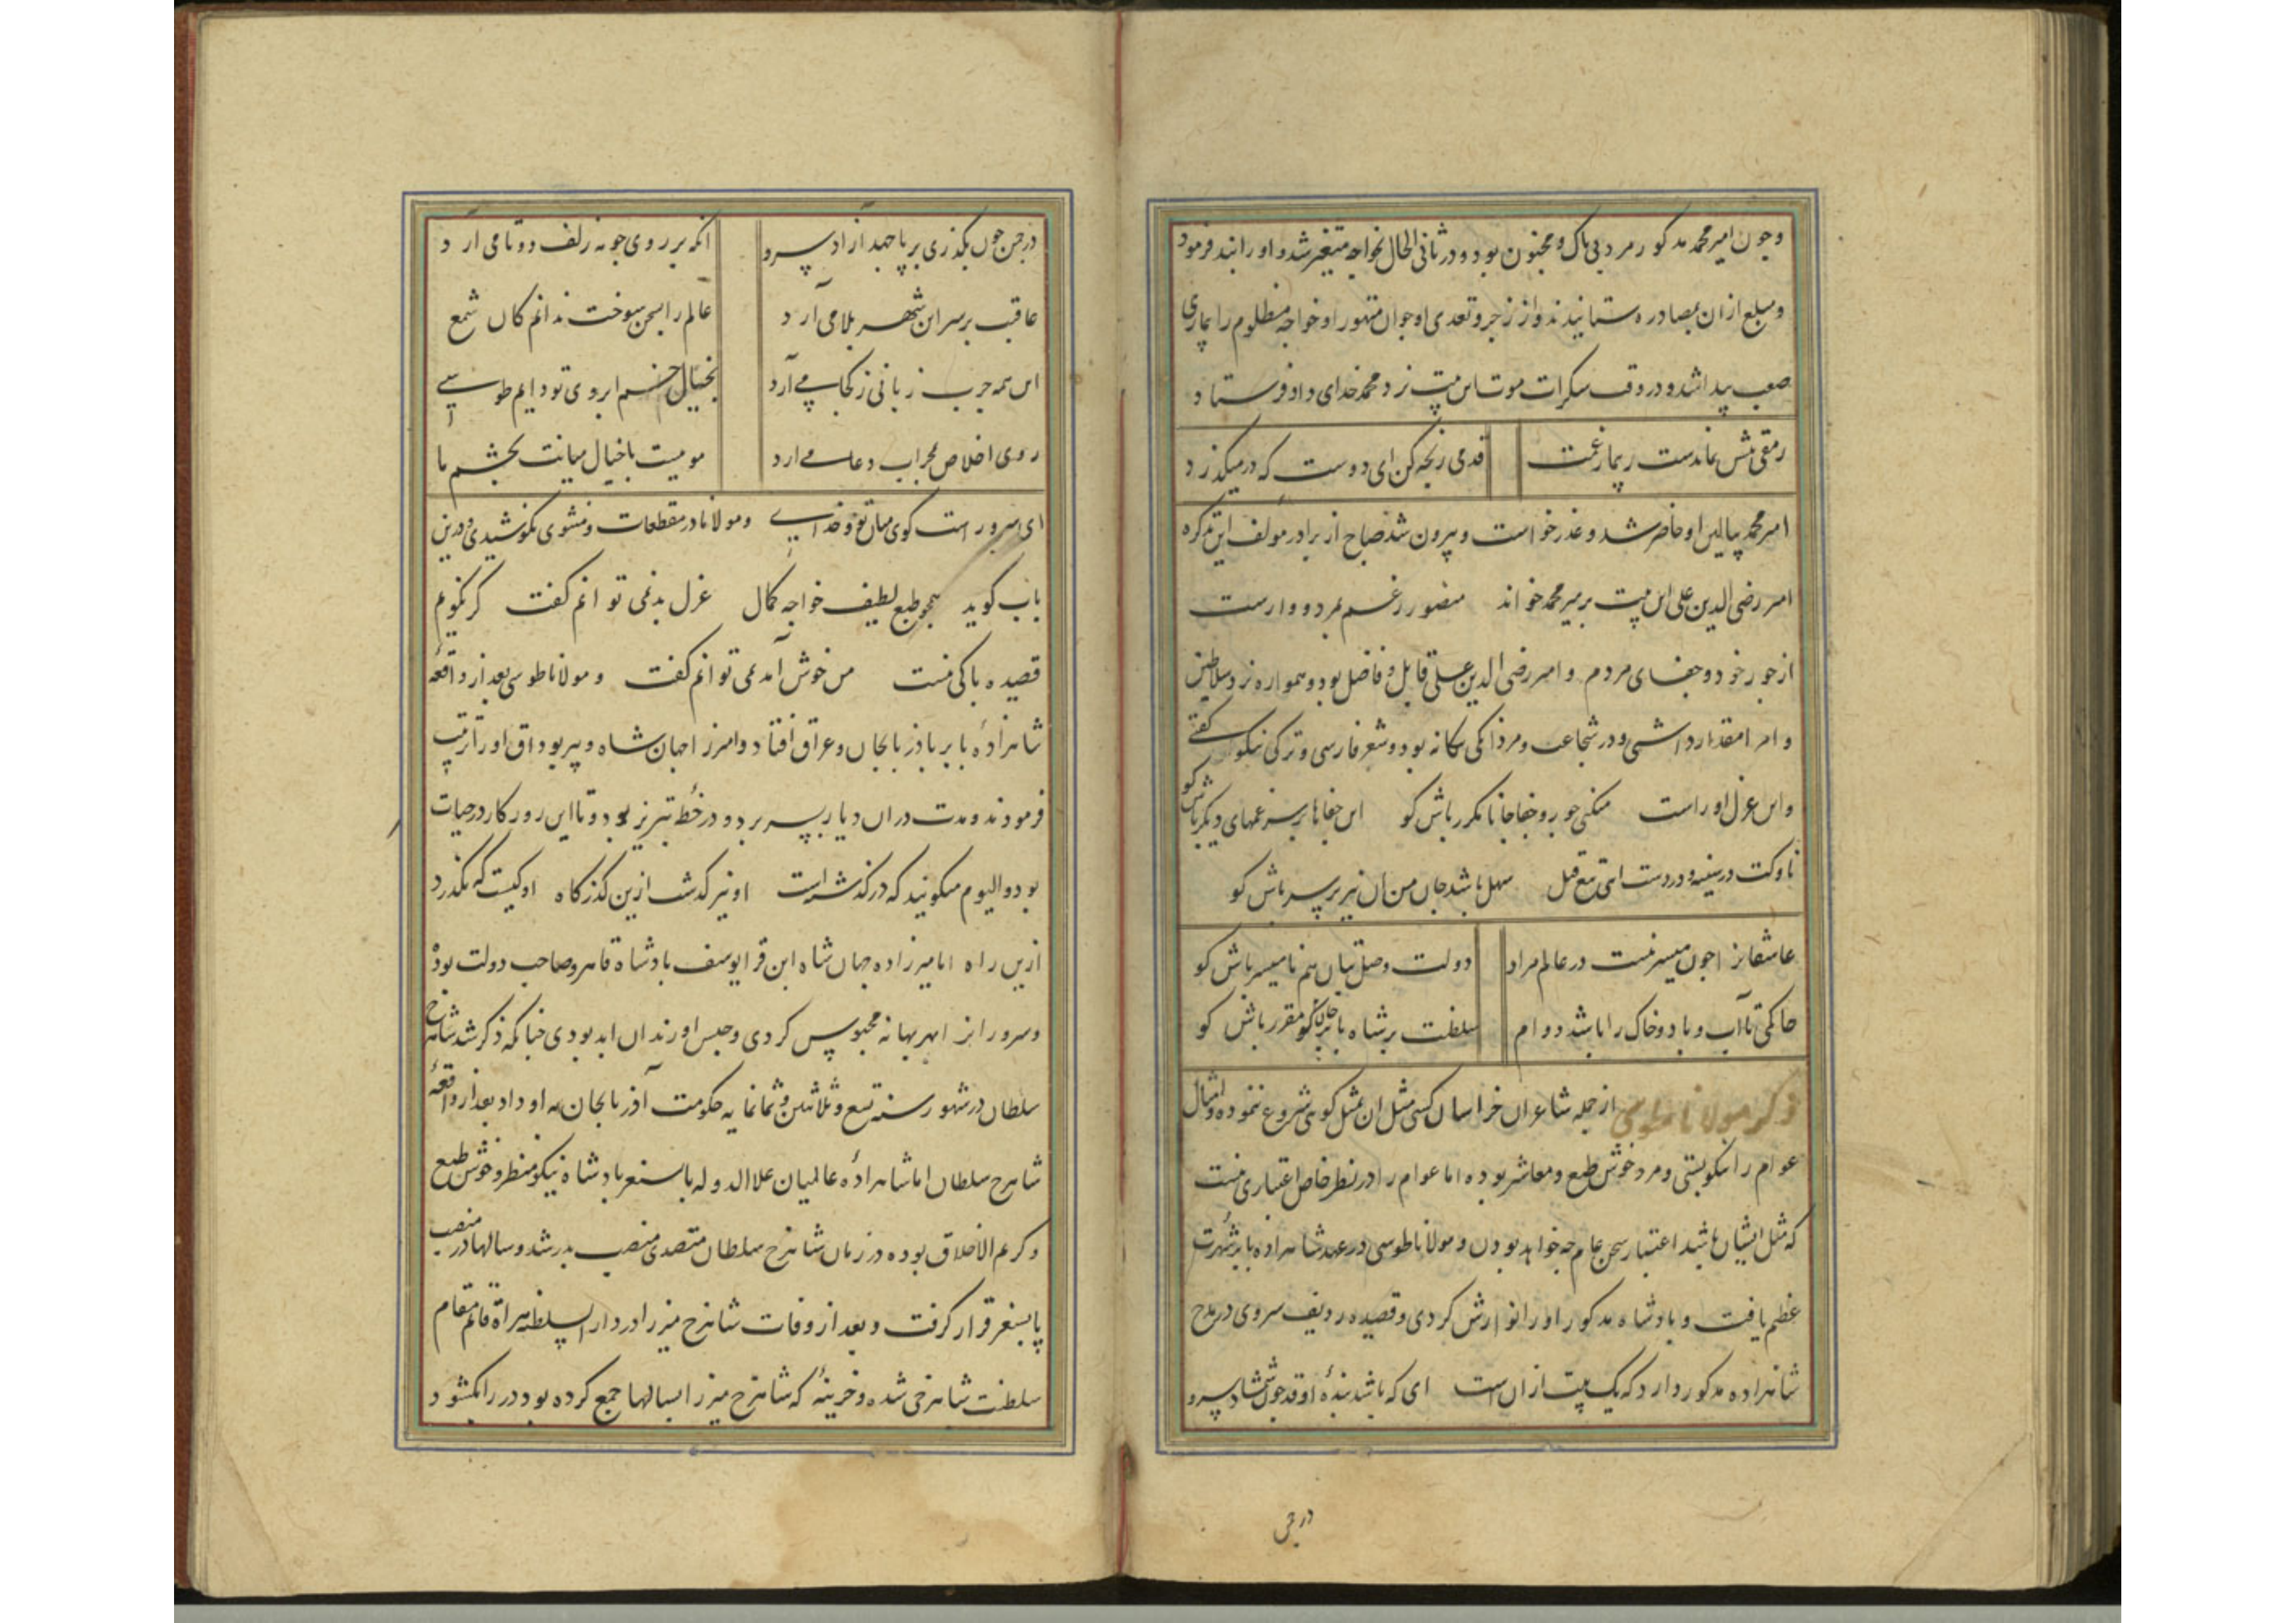 وجون امیر محمد مذکور مرد بی باک و مجنون بود و در ثانی الحال بخواجه متغیر شد و او را بند فرمود
و مبلغ ازان بمصادره ستانیدند و از زجر و تعدی او جوان متهور او خواجه مظلوم را بیماری
صعب پیدا شد و در وقت سکرات موت این بیت نزد محمد خدای داد فرستاد
رمقی بیش نماندست ز بیمار غمت قدمی رنجه کن ای دوست که در میکذرد
امیر محمد ببالین او حاضر شد و عذر خواست و بیرون شد صباح از برادر مولف این تذکره
امیر رضی الدین علی این بیت بر میر محمد خواند منصور ز غم بمرد و وارست
از جور خود و جفای مردم و امیر رضی الدین علی قابل و فاضل بود و همواره نزد سلاطین
و امرا مقدار داشتی و در شجاعت و مردانکی یکانه بود و شعر فارسی و ترکی نیکو گفتی
و این غزل او راست میکنی جور و جفا جانا مکرر باش کو این جفاها بر سر غمهای دیکر باش کو
ناوکت در سینه و در دست ای تیغ قتل سهل باشد جان من آن نیز بر سر باش کو
عاشقانرا چون میسر نیست در عالم مراد دولت وصل بتان هم نا میسر باش کو
خاکی تا آب و باد و خاک را باشد دوام سلطنت بر شاه بابر خان مقرر باش کو
ذکر مولانا طوسی از جمله شاعران خراسان کسی مثل او مثل کوی شروع ننموده و امثال
عوام را نیکو بستی و مرد خوش طبع و معاشر بوده اما عوام را در نظر خاص اعتباری نیست
که مثل ایشان باشد اعتبار سخن عام چه خواهد بودن و مولانا طوسی در عهد شاهزاده بابر شهرت
عظیم یافت و بادشاه مذکور او را نوازش کردی و قصیده ردیف سروی در مدح
شاهزاده مذکور دارد که یک بیت از ان است ای که باشد بنده او قد چون شمشاد سرو
در چمن
در چمن چون بکذری بر پا جهد آزاد سرو انکه بر روی چو مه زلف دوتا می آرد
عاقبت بر سر این شهر بلا می آرد عالم را بسخن سوخت ندانم کان شمع
این همه چرب زبانی ز کجا می آرد بخیال خم ابروی تو دایم طوسی
روی اخلاص بمحراب دعا می آرد مویست یا خیال میانت بچشم ما
ای سرو راست کوی میان تو و خدای و مولانا در مقطعات و مثنوی نکو کوشیدی و درین
باب کوید همجو طبع لطیف خواجه کمال غزل بد نمی توانم کفت کر نکویم
قصیده باکی نیست من خوش آمد نمی توانم کفت و مولانا طوسی بعد از واقعه
شاهزاده بابر باذربایجان و عراق افتاد و امیرزا جهان شاه و پیر بوداق او را تربیت
فرمودند و مدت در ان دیار بسر برد و در خطه تبریز بود و تا این روزکار در حیات
بود و الیوم میکویند که در کذشته است او نیز کذشت ازین کذرکاه او کیست که نکذرد
ازین راه اما میرزاده جهان شاه ابن قرا یوسف بادشاه قاهر و صاحب دولت بود
و سرور انرا بهر بهانه محبوس کردی و حبس او زندان ابد بودی چنانکه ذکر شد شاهرخ
سلطان در شهور سنه تسع و ثلاثین و ثمانمایه حکومت آذربایجان به او داد بعد از واقعه
شاهرخ سلطان اما شاهزاده عالمیان علا الدوله بایسنغر بادشاه نیکو منظر و خوش طبع
و کریم الاخلاق بوده در زمان شاهرخ سلطان متصدی منصب پدر شد و سالها در منصب
بایسنغر قرار کرفت و بعد از وفات شاهرخ میرزا در دار السلطنه هراة قایم مقام
سلطنت شاهرخی شده و خزینهٔ که شاهرخ میرزا بسالها جمع کرده بود در را بکشود